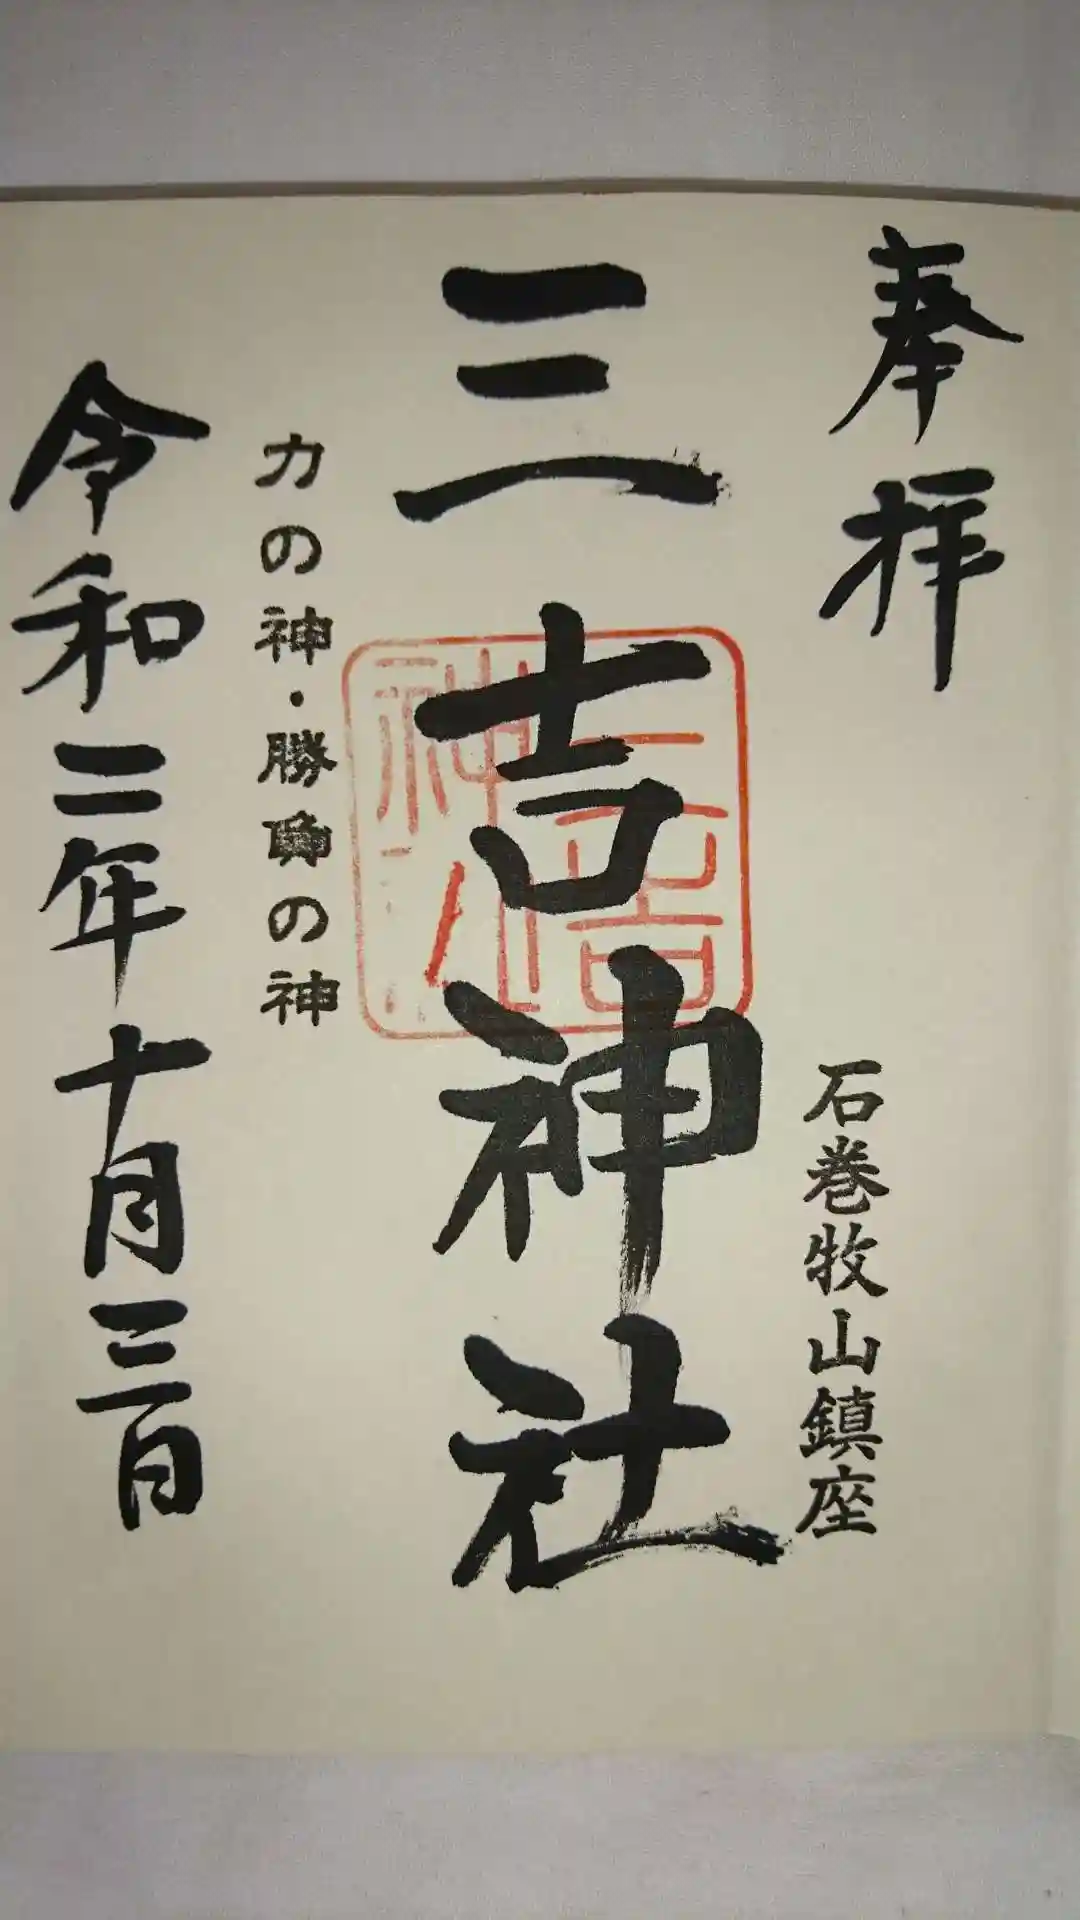 奉拝
石巻牧山鎮座
三吉神社
三吉
神社
力の神・勝負の神
令和二年十月三日